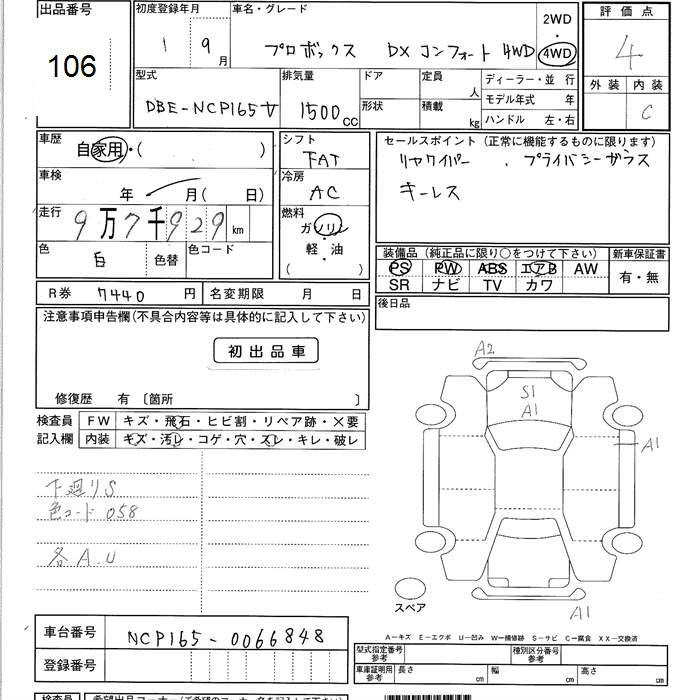 出品番号
106
初度登録年月
1 9月
車名・グレード
プロボックス DX コンフォート 4WD
2WD
・
4WD
評価点
4
外装 内装
C
型式
DBE-NCP165V
排気量
1500cc
ドア
形状
定員
人
積載
kg
ディーラー・並 行
モデル年式 年
ハンドル 左・右
車歴
自家用・( )
車検
年 月( 日)
走行
9万7千929km
色
白
色替
色コード
シフト
FAT
冷房
AC
燃料
ガソリン
・
軽・油
( )
セールスポイント (正常に機能するものに限ります)
リヤワイパー 、プライバシーガラス
キーレス
装備品 (純正品に限り○をつけて下さい)
PS PW ABS エアB AW
SR ナビ TV カワ
新車保証書
有・無
R券 7440円
名変期限 月 日
後日品
注意事項申告欄(不具合内容等は具体的に記入して下さい)
初出品車
修復歴 有 〔箇所 〕
検査員
記入欄
FW キズ・飛石・ヒビ割・リペア跡・×要
内装 キズ・汚レ・コゲ・穴・スレ・キレ・破レ
下廻りS
色コード 058
各A.U
A2
S1
A1
A1
A1
スペア
A―キズ E―エクボ U―凹み W―補修跡 S―サビ C―腐食 XX―交換済
車台番号
NCP165-0066848
登録番号
型式指定番号
参考
種別区分番号
参考
車庫証明用
参考
長さ cm 幅 cm 高さ cm
検査員